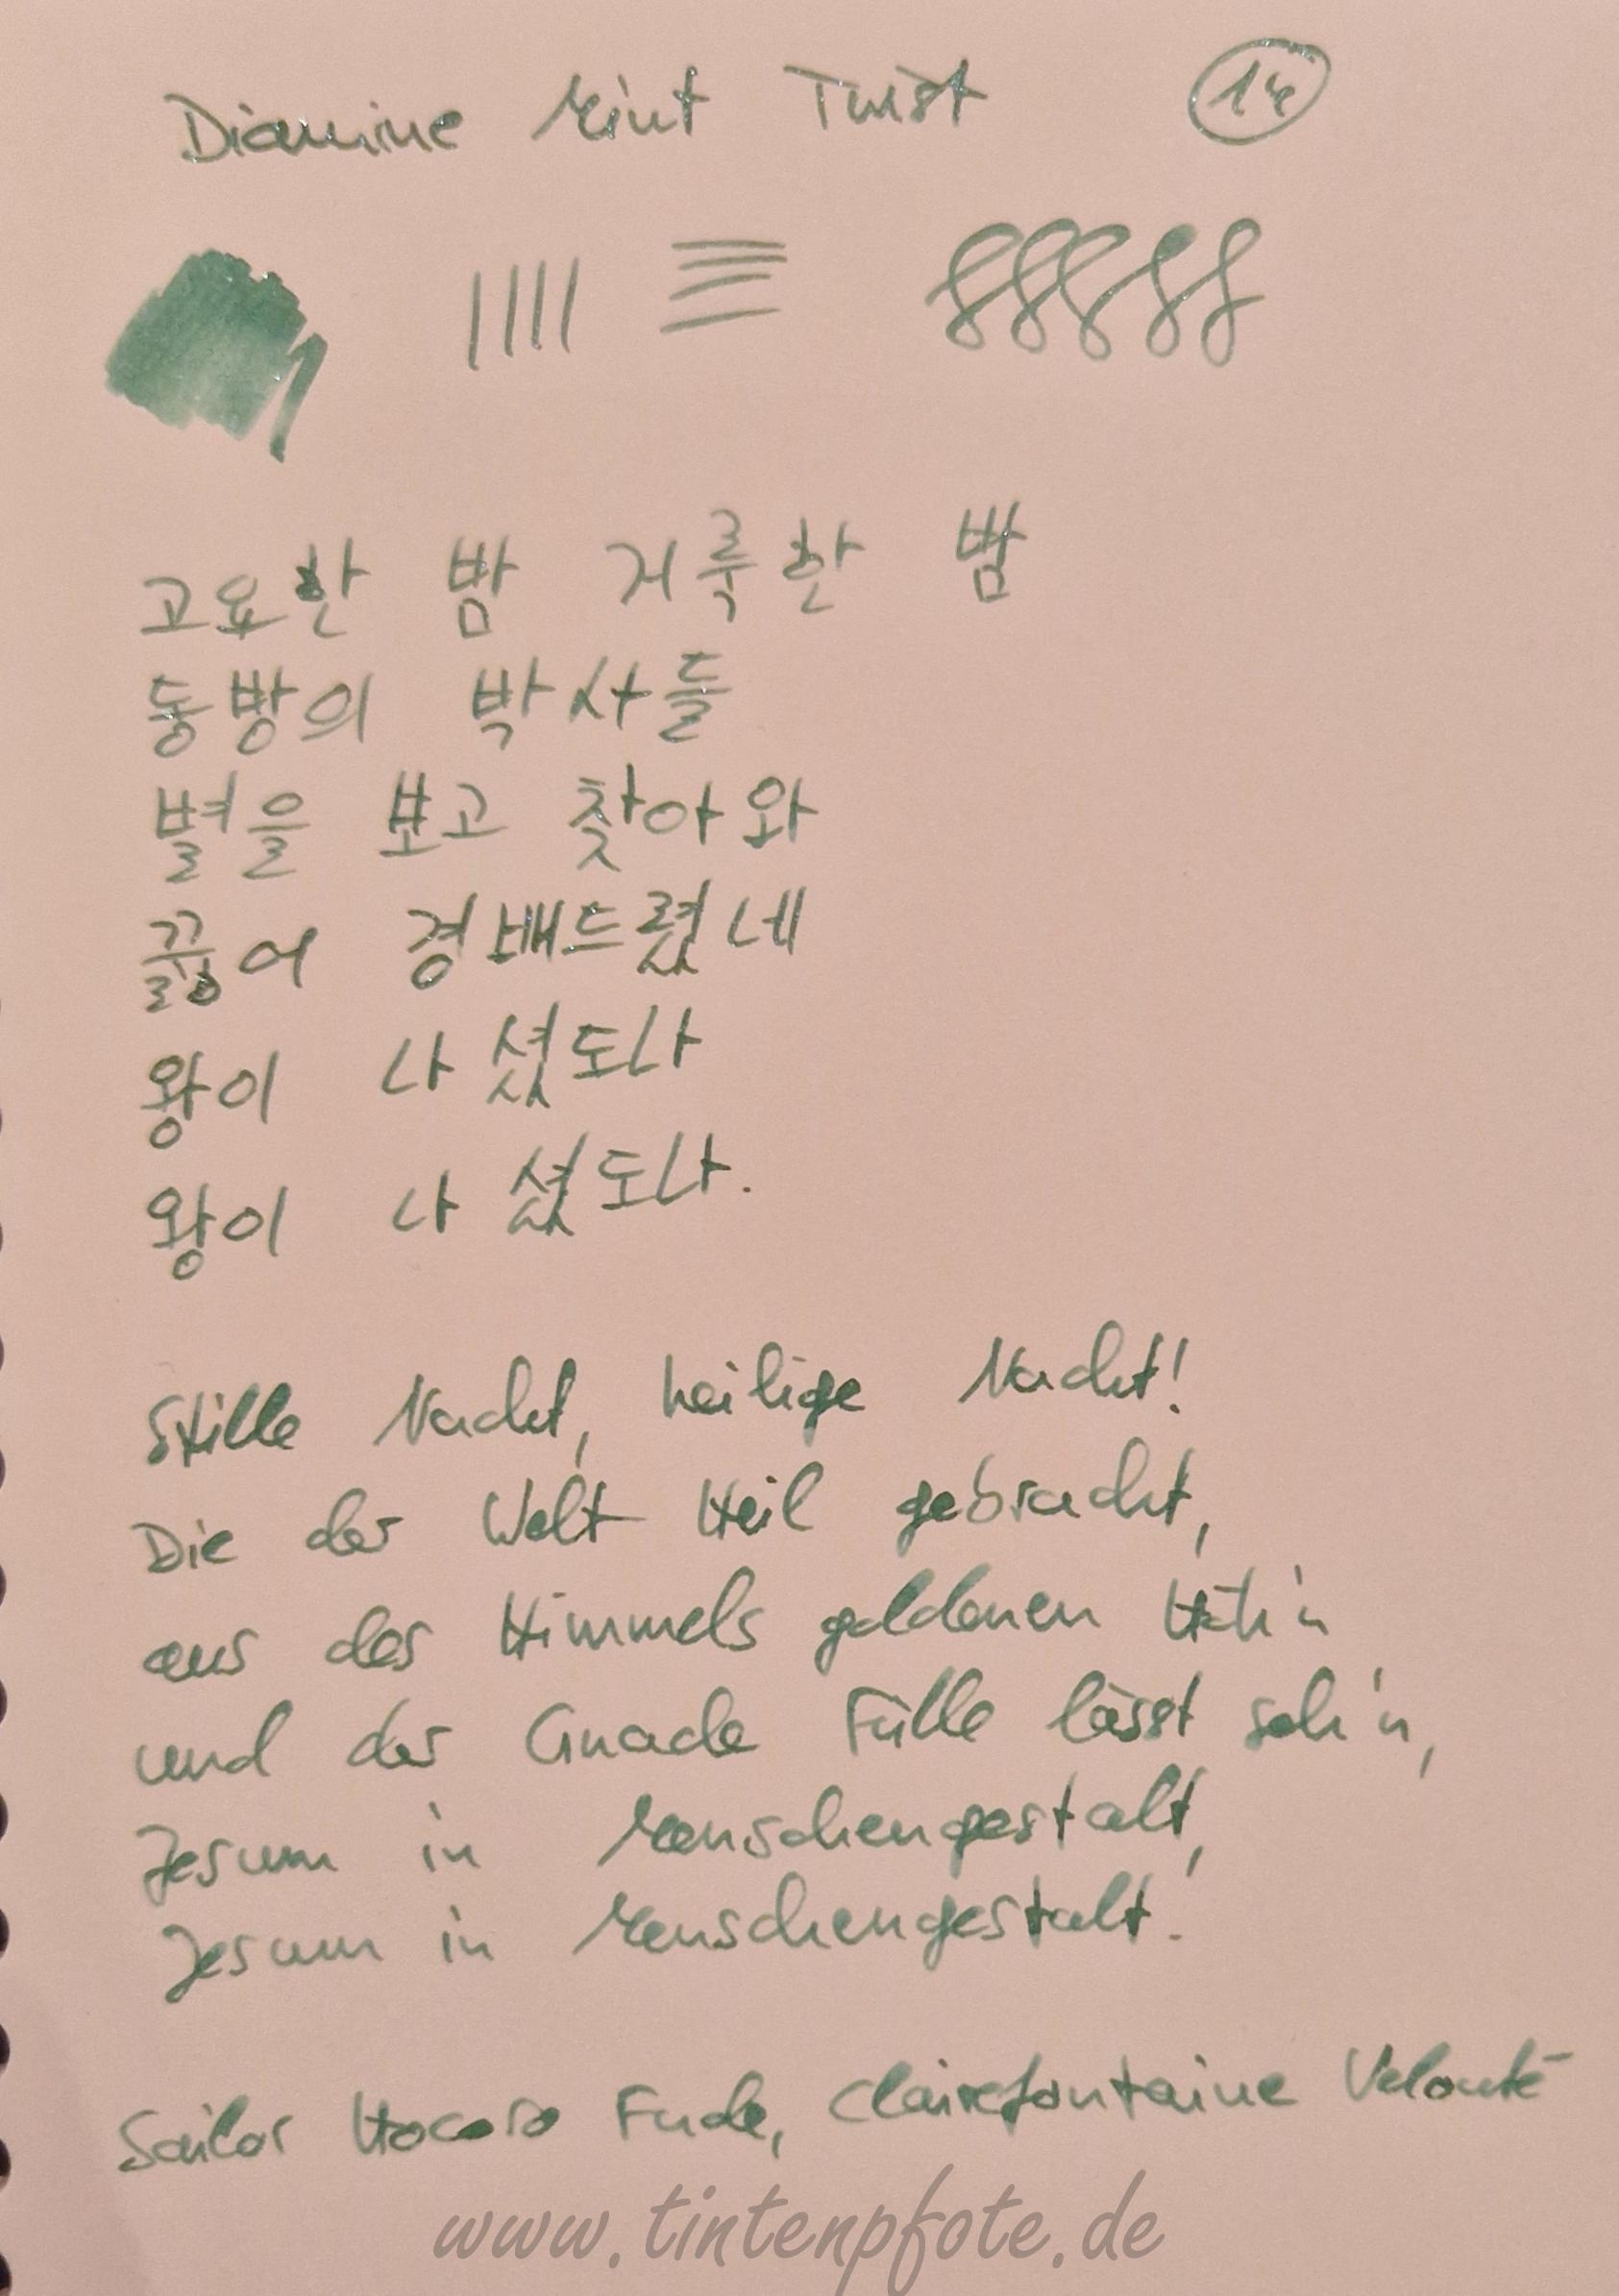 Diamine Mint Twist 14
고요한 밤 거룩한 밤
동방의 박사들
별을 보고 찾아와
꿇어 경배드렸네
왕이 나셨도나
왕이 나셨도나.
Stille Nacht, heilige Nacht!
Die der Welt Heil gebracht,
aus des Himmels goldenen Höh'n
und der Gnade Fülle lässt seh'n,
Jesum in Menschengestalt,
Jesum in Menschengestalt.
Sailor Hocoro Fude, Clairefontaine Velouté
www.tintenpfote.de